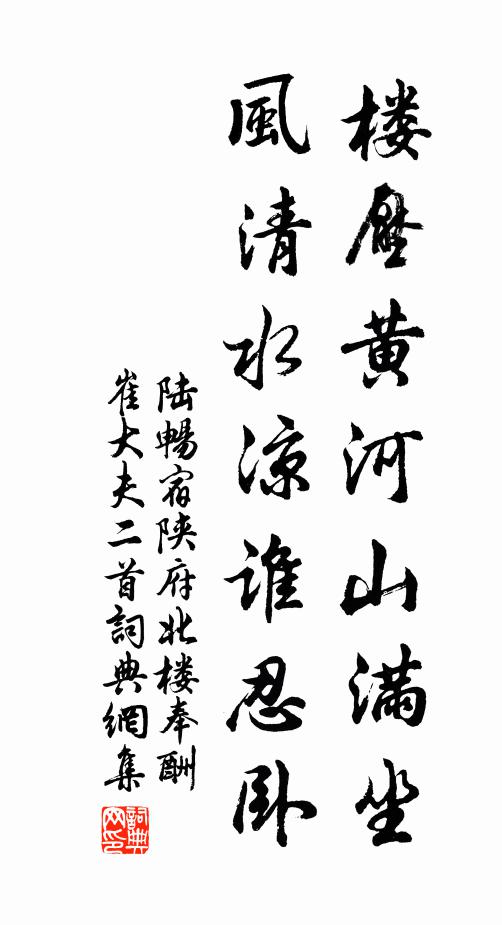 楼壓黄河山满坐
風清水凉誰忍卧
陆暢宿陕府北楼奉酬
崔大夫二首詞典網集
詞典
网印